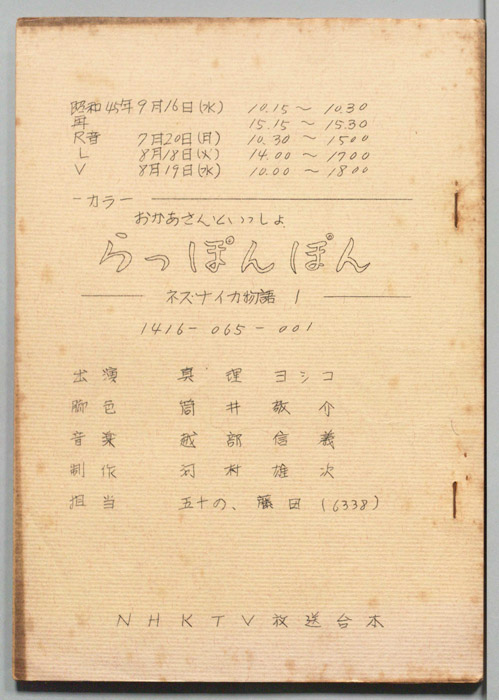 昭和45年9月16日(水) 10.15～10.30
再 15.15～15.30
R音 7月20日(月) 10.30～1500
L 8月18日(火) 14.00～1700
V 8月19日(水) 10.00～1800
－カラー－
おかあさんといっしょ
らっぽんぽん
ネズナイカ物語 1
1416－065－001
出演 真理ヨシコ
脚色 筒井敬介
音楽 越部信義
制作 河村雄次
担当 五十の、藤田(6338)
NHKTV放送台本